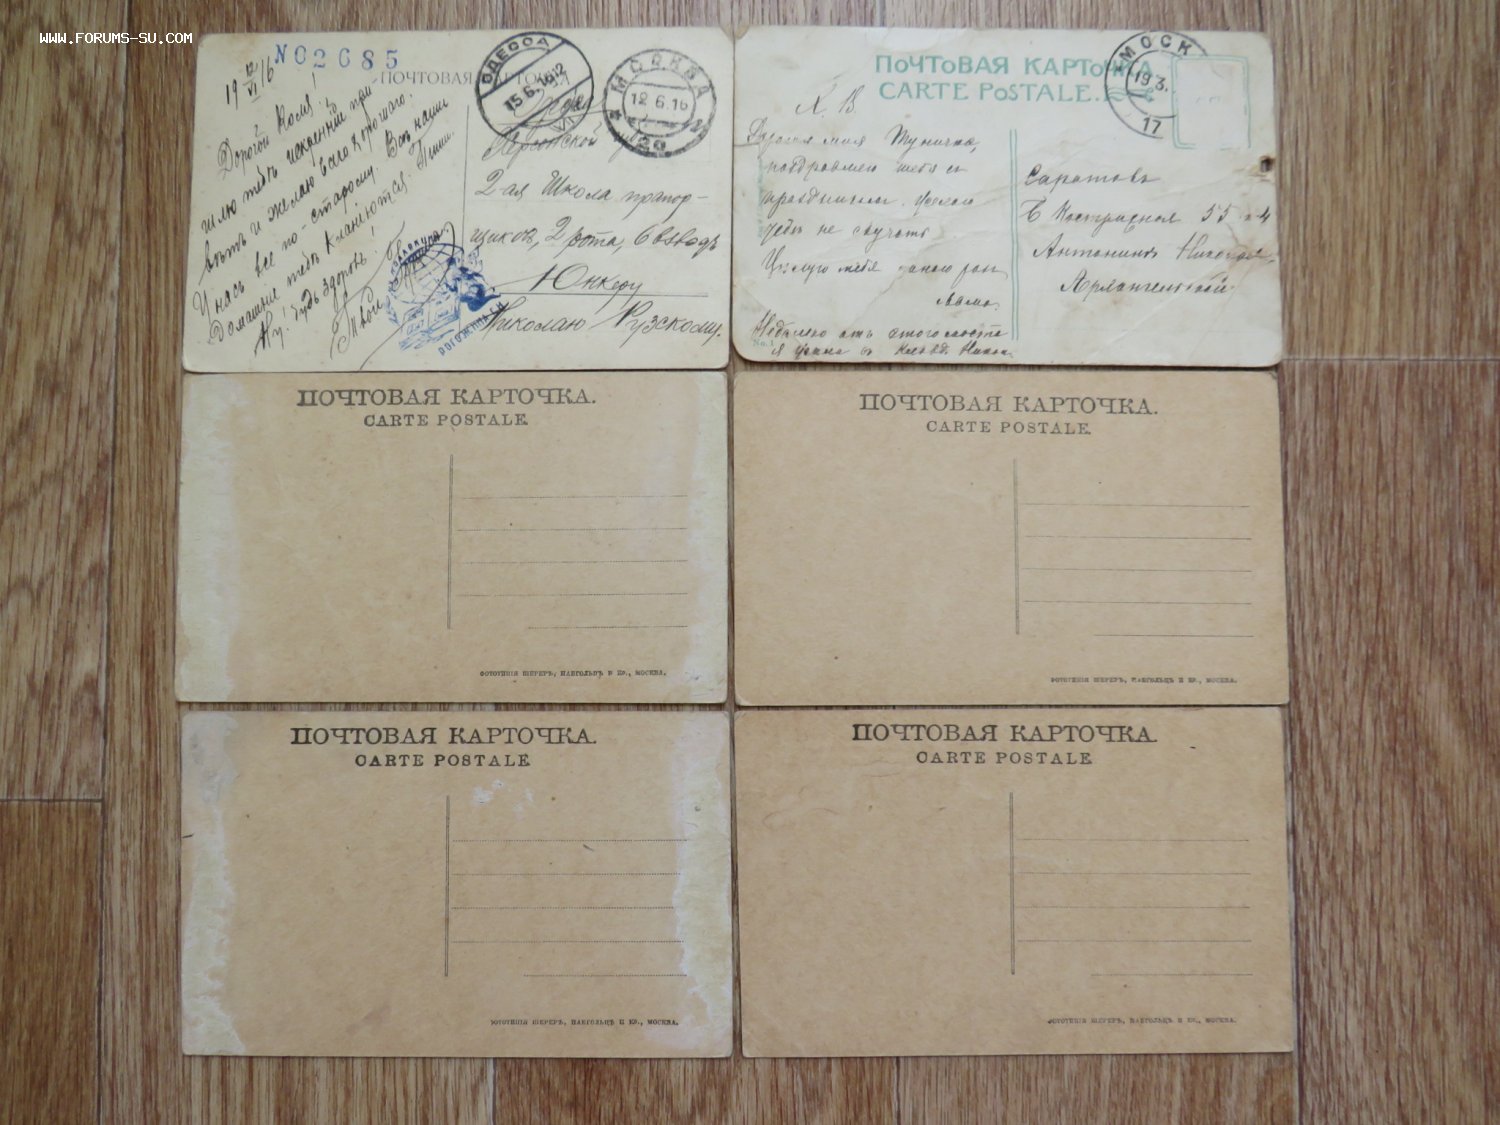 WWW.FORUMS-SU.COM
19 12/VI 16
NO 2685
ПОЧТОВАЯ КАРТОЧКА
ОДЕССА
15.6.16
МОСКВА
12.6.16
20
Дорогой Коля!
шлю тебѣ искренній при-
вѣтъ и желаю всего хорошаго.
У насъ все по-старому. Всѣ наши
Домашніе тебѣ кланяются. Пиши.
Ну! будь здоровъ!
Твой
Одесса
Херсонской губ
2-ая Школа прапор-
щиковъ, 2 рота, 6 взводъ
Юнкеру
Николаю Рузскому.
ПОЧТОВАЯ КАРТОЧКА
CARTE POSTALE.
МОСК
19.3.
17
Х. В.
Дорогая моя Туничка,
поздравляю тебя съ
праздникомъ. Желаю
тебѣ не скучать
Цѣлую тебя
Мама.
Недалеко отъ этого моста
я
No. 1
Саратовъ
Б Кострижная 55
Антонинѣ Николаев
Архангельской
ПОЧТОВАЯ КАРТОЧКА.
CARTE POSTALE.
ФОТОТИПІЯ ШЕРЕРЪ, НАБГОЛЬЦЪ И Ко., МОСКВА.
ПОЧТОВАЯ КАРТОЧКА.
CARTE POSTALE.
ФОТОТИПІЯ ШЕРЕРЪ, НАБГОЛЬЦЪ И Ко., МОСКВА.
ПОЧТОВАЯ КАРТОЧКА.
CARTE POSTALE
ФОТОТИПІЯ ШЕРЕРЪ, НАБГОЛЬЦЪ И Ко., МОСКВА.
ПОЧТОВАЯ КАРТОЧКА.
CARTE POSTALE
ФОТОТИПІЯ ШЕРЕРЪ, НАБГОЛЬЦЪ И Ко., МОСКВА.